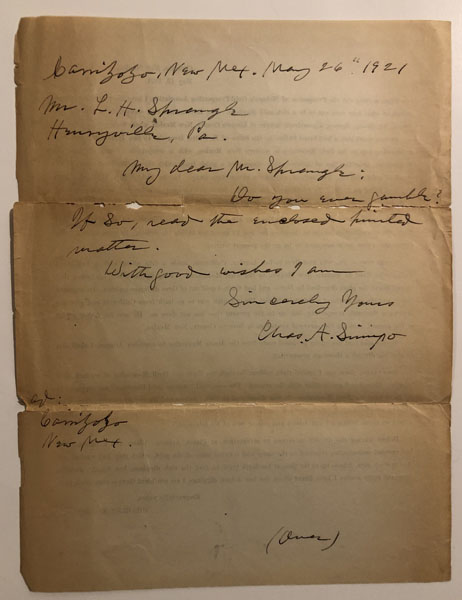 Carrizozo, New Mex. May 26th 1921
Mr. L. H. Sprangle
Henryville, Pa.
My dear Mr. Sprangle:
Do you ever gamble?
If so, read the enclosed printed
matter.
With good wishes I am
Sincerely Yours
Chas. A.
Carrizozo
New Mex.
(Over)